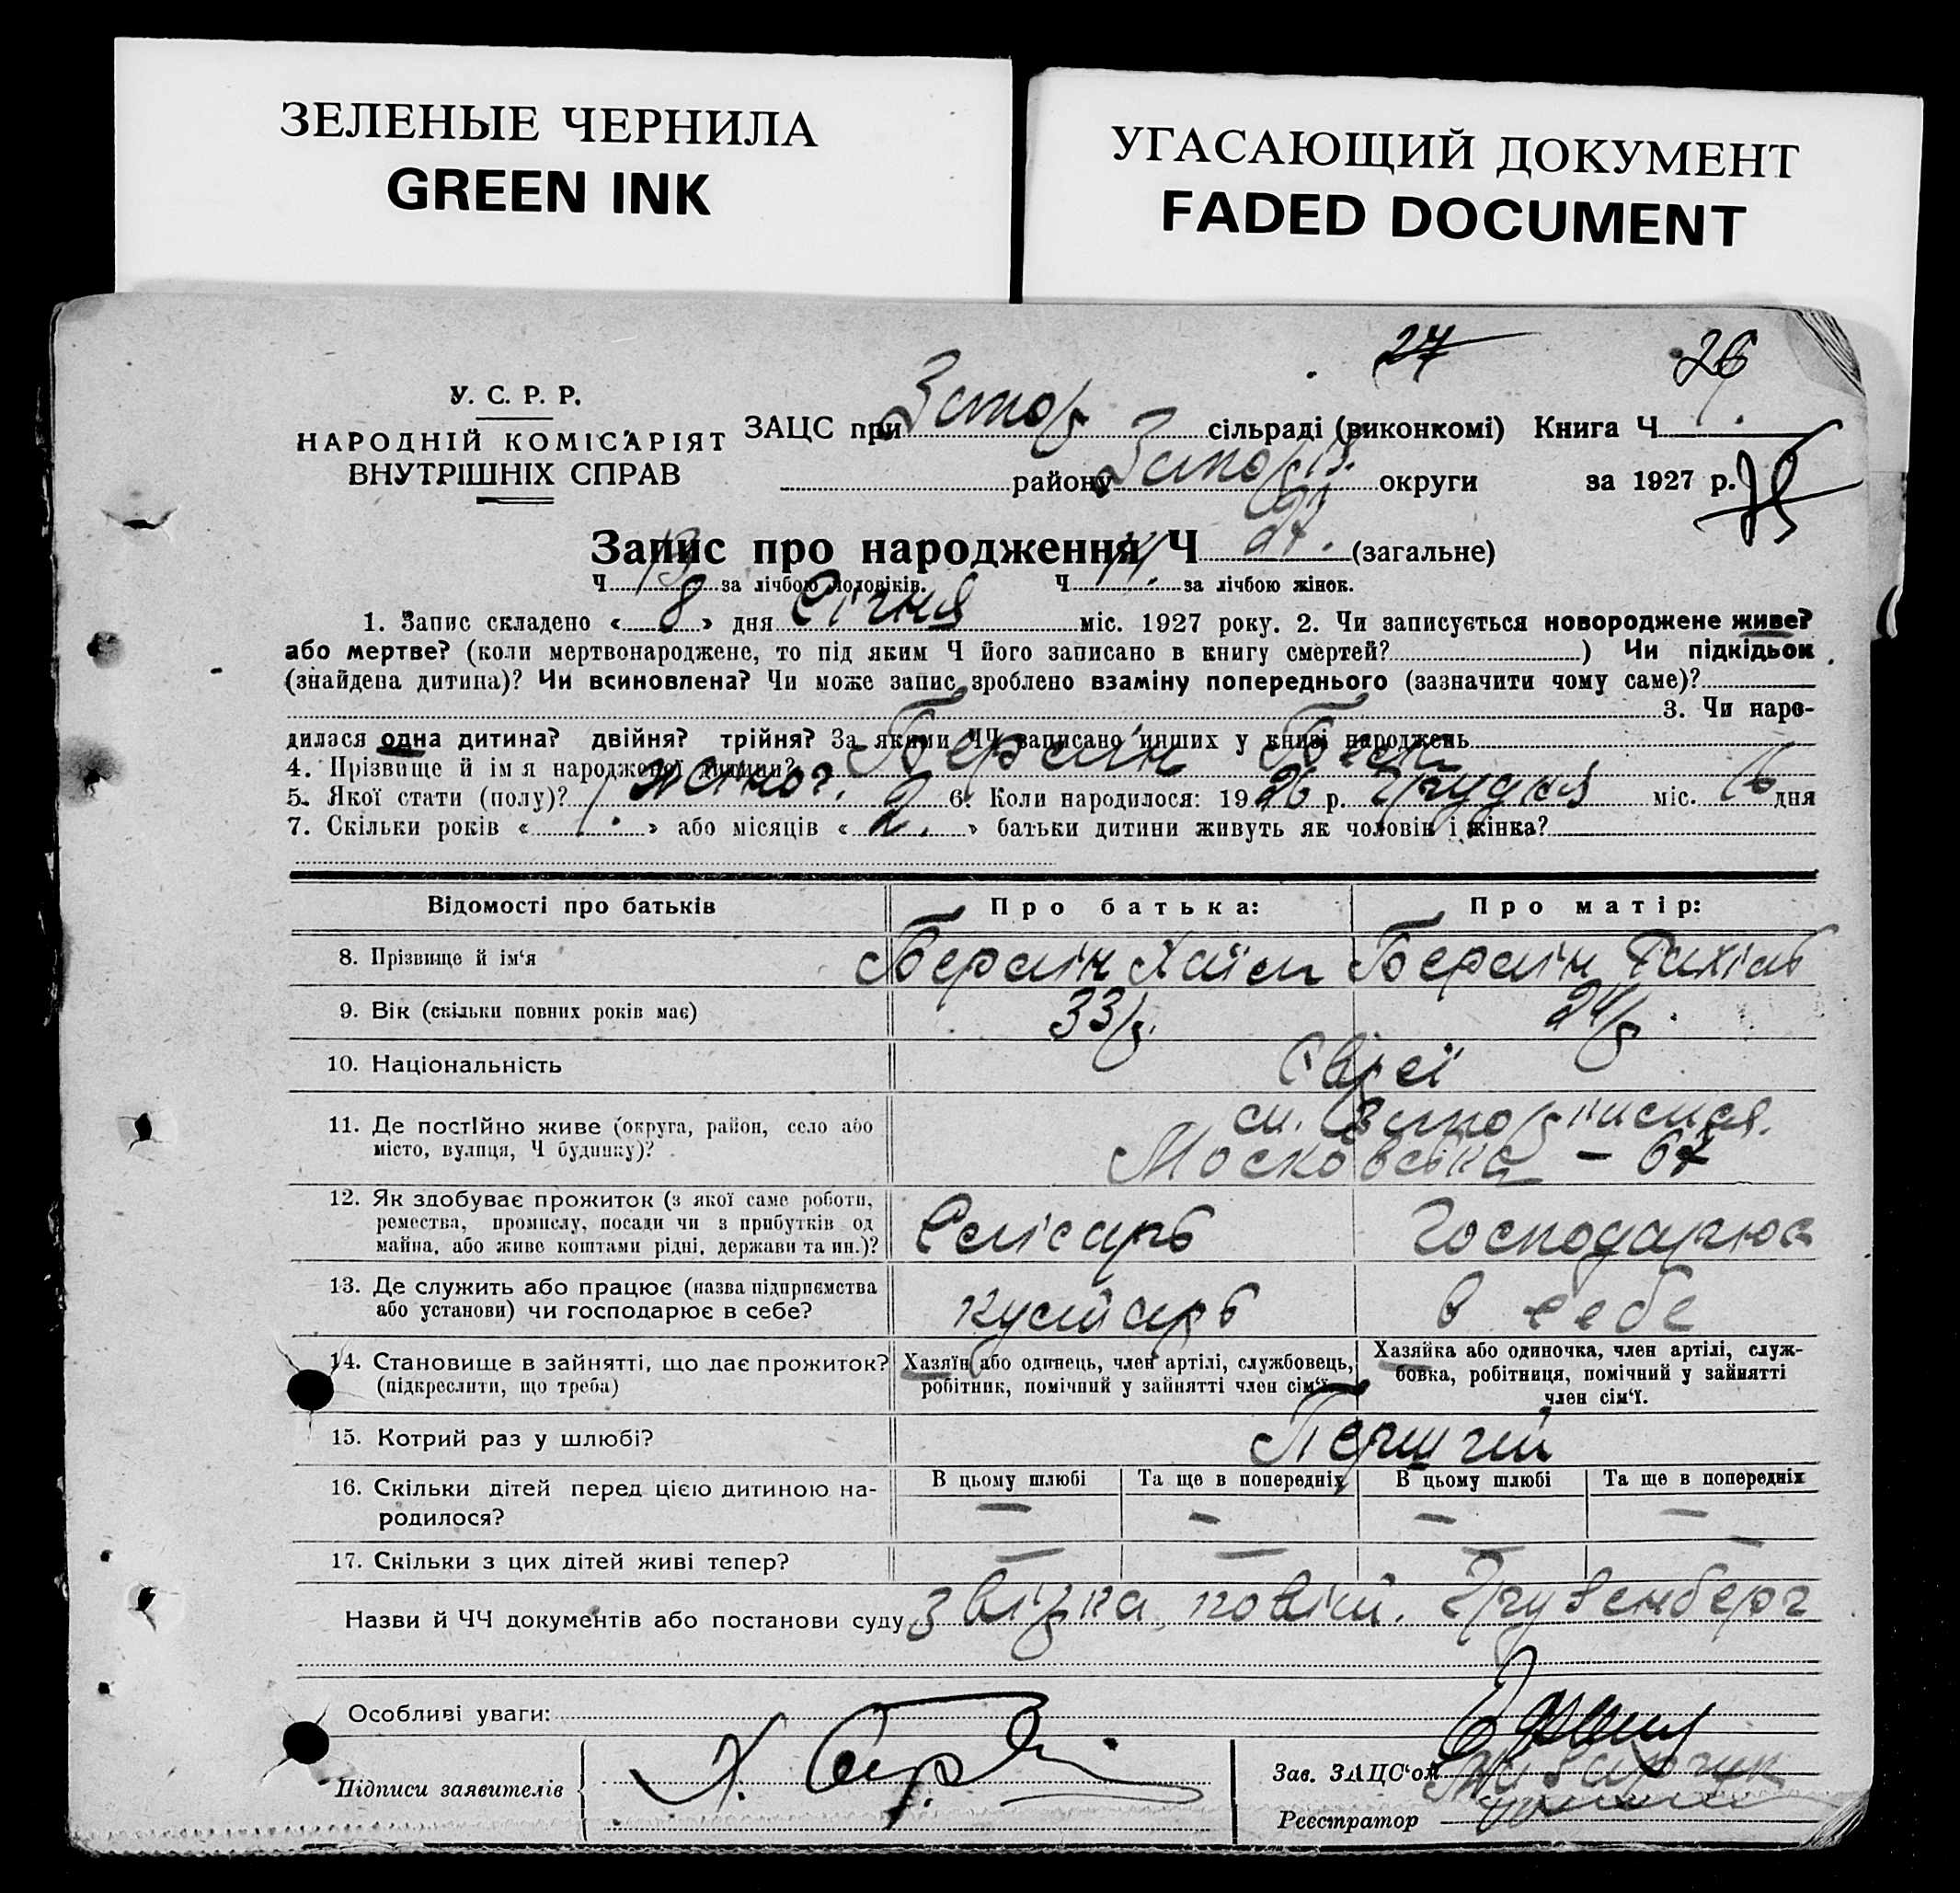 ЗЕЛЕНЫЕ ЧЕРНИЛА
GREEN INK
УГАСАЮЩИЙ ДОКУМЕНТ
FADED DOCUMENT
27 26
У. С. Р. Р.
НАРОДНІЙ КОМІСАРІЯТ
ВНУТРІШНІХ СПРАВ
ЗАЦС при Запор сільраді (виконкомі) Книга Ч 1.
району Запоріз. округи за 1927 р.
Запис про народження Ч 27. (загальне)
Ч 13 за лічбою чоловіків. Ч 14. за лічбою жінок.
1. Запис складено « 8 » дня Січня міс. 1927 року. 2. Чи записується новороджене живе?
або мертве? (коли мертвонароджене, то під яким Ч його записано в книгу смертей? ) Чи підкідьок
(знайдена дитина)? Чи всиновлена? Чи може запис зроблено взаміну попереднього (зазначити чому саме)?
3. Чи наро-
дилася одна дитина? двійня? трійня? За якими ЧЧ записано инших у книзі народжень
4. Прізвище й імя народженої дитини? Берлін
5. Якої стати (полу)? жіноч. 6. Коли народилося: 1926 р. Грудня міс. 16 дня
7. Скільки років « 1. » або місяців « 2. » батьки дитини живуть як чоловік і жінка?
Відомості про батьків Про батька: Про матір:
8. Прізвище й ім‘я Берлін Хаїм Берлін Рахіль
9. Вік (скільки повних років має) 33/р. 24/р.
10. Національність Євреї
11. Де постійно живе (округа, район, село або
місто, вулиця, Ч будинку)? м. Запоріжжя.
Московська – 67
12. Як здобуває прожиток (з якої саме роботи,
ремества, промислу, посади чи з прибутків од
майна, або живе коштами рідні, держави та ин.)? Слісарь Господарює
13. Де служить або працює (назва підприємства
або установи) чи господарює в себе? кустарь в себе
14. Становище в зайнятті, що дає прожиток?
(підкреслити, що треба)
Хазяїн або одинець, член артілі, службовець,
робітник, помічний у зайнятті член сім‘ї.
Хазяйка або одиночка, член артілі, служ-
бовка, робітниця, помічний у зайнятті
член сім‘ї.
15. Котрий раз у шлюбі? Перший
В цьому шлюбі Та ще в попередніх В цьому шлюбі Та ще в попередніх
16. Скільки дітей перед цією дитиною на-
родилося? – – – –
17. Скільки з цих дітей живі тепер? – – – –
Назви й ЧЧ документів або постанови суду звізка повіт. Грузенберг
Особливі уваги:
Підписи заявителів Х. Берлін
Зав. ЗАЦС‘ом
Реєстратор